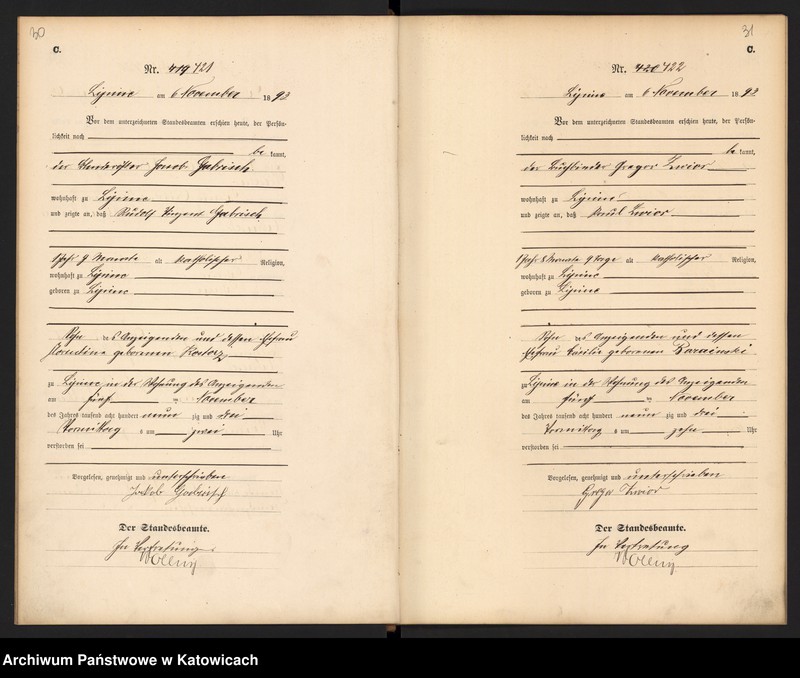 30
C.
Nr. 419 121
Lipine am 6 November 1893
Vor dem unterzeichneten Standesbeamten erschien heute, der Persön-
lichkeit nach
be kannt,
der Jacob Gabrisch
wohnhaft zu Lipine
und zeigte an, daß Rudolf Vinzent Gabrisch
1 Jahr 9 Monate alt katholischer Religion,
wohnhaft zu Lipine
geboren zu Lipine
Sohn des Anzeigenden und dessen Ehefrau
geborenen
zu Lipine in der Wohnung des Anzeigenden
am fünf ten November
des Jahres tausend acht hundert neun zig und drei
Vormittag s um zwei Uhr
verstorben sei
Vorgelesen, genehmigt und unterschrieben
Jakob Gabrisch
Der Standesbeamte.
In Vertretung
Wolleny
31
C.
Nr. 420 122
Lipine am 6 November 1893
Vor dem unterzeichneten Standesbeamten erschien heute, der Persön-
lichkeit nach
be kannt,
der Buchbinder Gregor Zwior
wohnhaft zu Lipine
und zeigte an, daß Paul Zwior
1 Jahr 8 Monate 9 Tage alt katholischer Religion,
wohnhaft zu Lipine
geboren zu Lipine
Sohn des Anzeigenden und dessen
Ehefrau Cäcilie geborenen
zu Lipine in der Wohnung des Anzeigenden
am fünf ten November
des Jahres tausend acht hundert neun zig und drei
Vormittag s um zehn Uhr
verstorben sei
Vorgelesen, genehmigt und unterschrieben
Gregor Zwior
Der Standesbeamte.
In Vertretung
Wolleny
Archiwum Państwowe w Katowicach